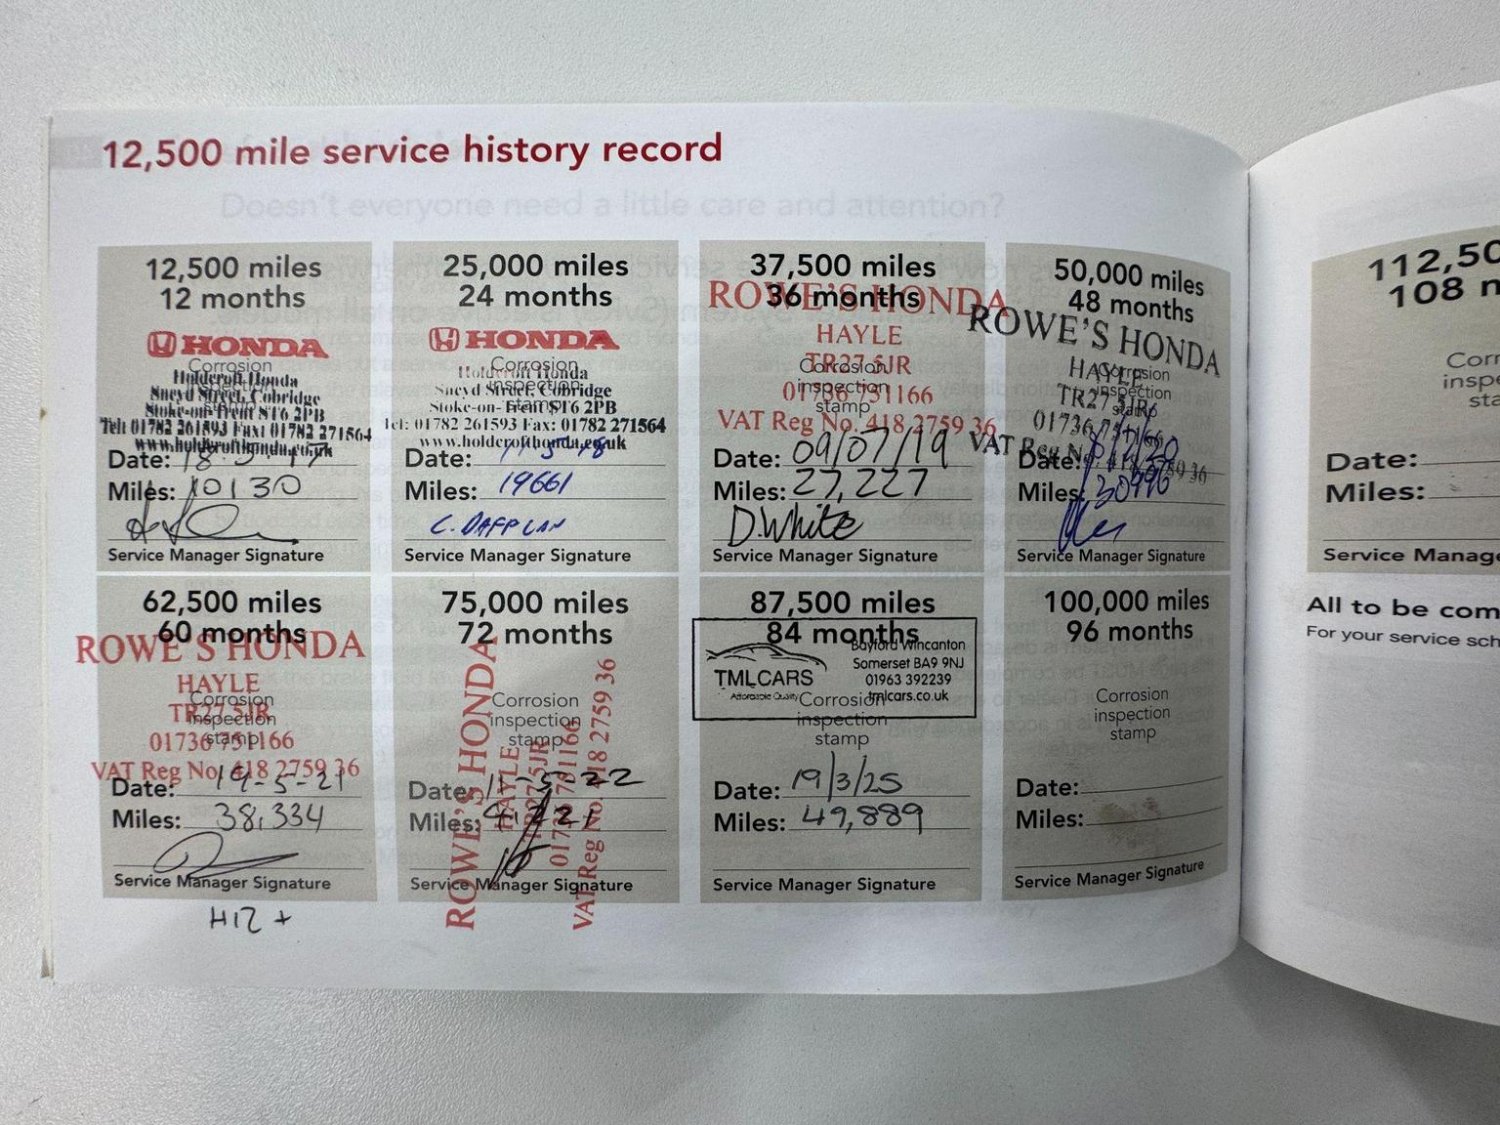 12,500 mile service history record
Doesn't everyone need a little care and attention?
12,500 miles
12 months
HONDA
Corrosion
Holdcroft Honda
Sneyd Street, Cobridge
Stoke-on-Trent ST6 2PB
Tel: 01782 261593 Fax: 01782 271564
www.holdcrofthonda.co.uk
Date: 18-5-17
Miles: 10130
Service Manager Signature
25,000 miles
24 months
HONDA
Corrosion
Holdcroft Honda
inspection
Sneyd Street, Cobridge
stamp
Stoke-on-Trent ST6 2PB
Tel: 01782 261593 Fax: 01782 271564
www.holdcrofthonda.co.uk
Date: 11-5-18
Miles: 19661
Service Manager Signature
37,500 miles
36 months
ROWE'S HONDA
HAYLE
TR27 5JR
Corrosion
inspection
01736 751166
stamp
VAT Reg No. 418 2759 36
Date: 09/07/19
Miles: 27,227
D.White
Service Manager Signature
50,000 miles
48 months
ROWE'S HONDA
HAYLE
Corrosion
inspection
TR27 5JR
stamp
01736 751166
VAT Reg No. 418 2759 36
Date:
Miles:
Service Manager Signature
62,500 miles
60 months
ROWE'S HONDA
HAYLE
Corrosion
TR27 5JR
inspection
stamp
01736 751166
VAT Reg No. 418 2759 36
Date: 19-5-21
Miles: 38,334
Service Manager Signature
75,000 miles
72 months
ROWE'S HONDA
HAYLE
TR27 5JR
01736 751166
VAT Reg No. 418 2759 36
Corrosion
inspection
stamp
Date: 11-5-22
Miles:
Service Manager Signature
87,500 miles
84 months
TMLCARS
Affordable Quality
Bayford Wincanton
Somerset BA9 9NJ
01963 392239
tmlcars.co.uk
Corrosion
inspection
stamp
Date: 19/3/25
Miles: 49,889
Service Manager Signature
100,000 miles
96 months
Corrosion
inspection
stamp
Date:
Miles:
Service Manager Signature
112,50
108 m
Corr
inspe
sta
Date:
Miles:
Service Manag
All to be com
For your service sch